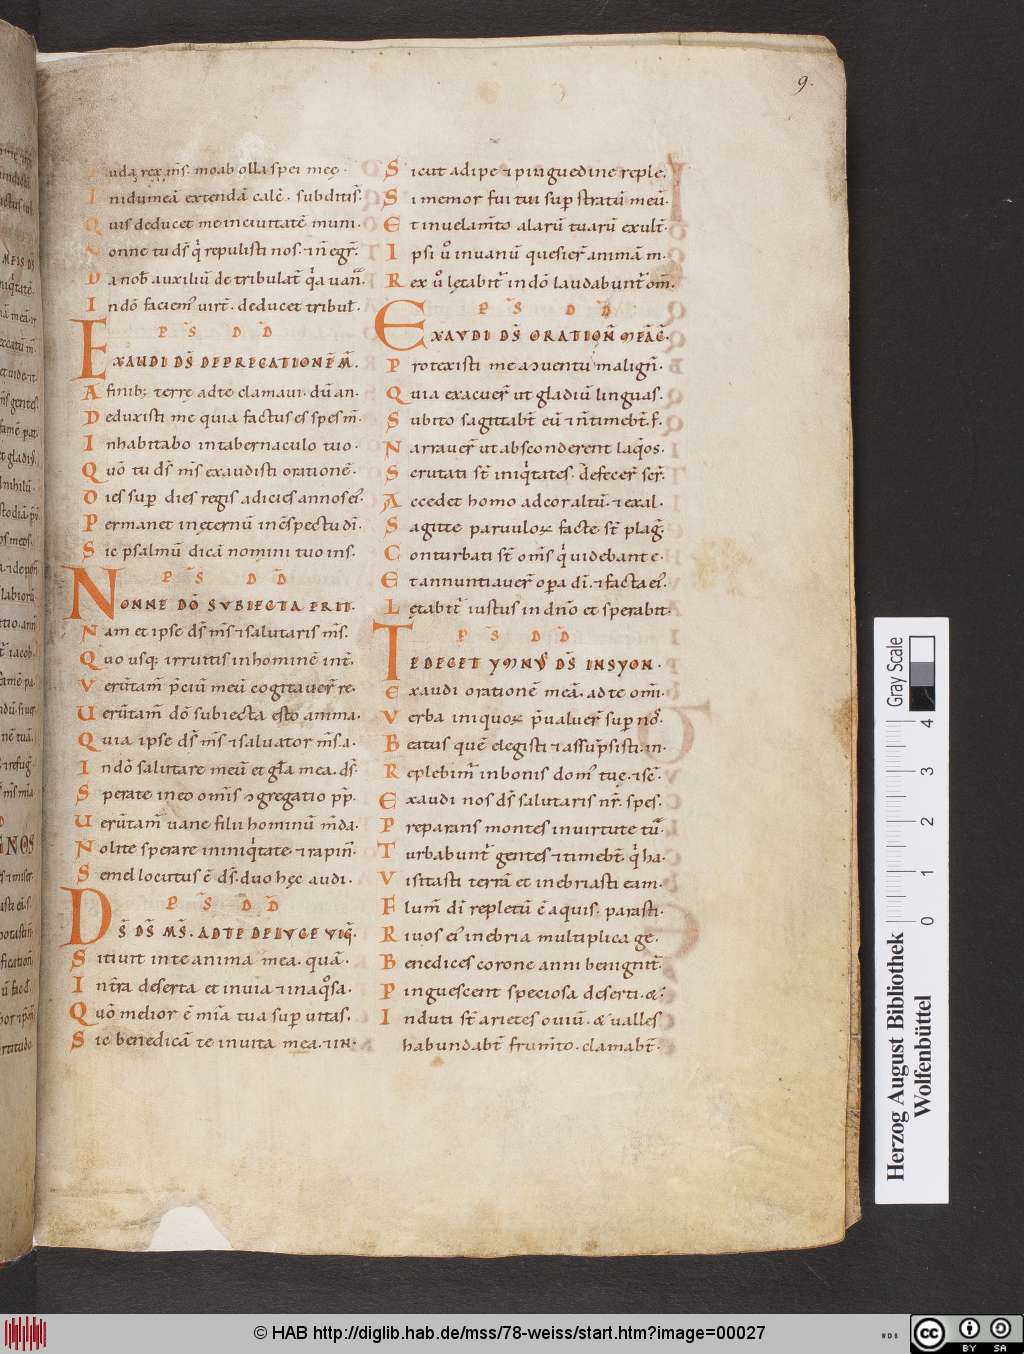 9.
Iuda rex m̄s. moab olla spei meę.
I nidumeā extendā calc̄. subditis̄.
Q uis deducet me incivitatē muni.
N onne tu ds̄ q̇ repulisti nos. ⁊ n̄ egr̄.
D a nob̄ auxiliū de tribulat̄ q̇a van̄.
I ndō faciem᾽ virt̄. deducet tribul̄.
P S̄ D D̄
EXAUDI DS̄ DEPRECATIONĒ M̄.
A finib; terrę adte clamavi. dū an.
D eduxisti me quia factus es spes m̄.
I nhabitabo intabernaculo tuo.
Q uō tu ds̄ m̄s exaudisti orationē.
D ies sup dies regis adicies annos ei᾽.
P ermanet inęternū incspectu dī.
S ic psalmū dicā nomini tuo ins.
P S̄ D D̄
NONNE DŌ SUBIECTA ERIT.
N am et ipse ds̄ m̄s ⁊ salutaris m̄s.
Q uo usq; irruitis inhominē int̄.
V erūtam̄ p̄ciū meū cogitaver̄ re.
U erūtam̄ dō subiecta esto anima.
Q uia ipse ds̄ m̄s ⁊ salvator m̄s. a.
I ndō salutare meū et gl̄a mea. ds̄.
S perate ineo om̄is ɔgregatio pp̄.
U erūtam̄ vane filii hominū m̄da.
N olite sperare ininiq̇tate. ⁊ rapin̄.
S emel locutus ē ds̄. duo hęc audi.
P S̄ D̄ D̄
DS̄ DS̄ M̄S. ADTE DELUCE VIḠ.
S itivit inte anima mea. quā.
I nt̄ra deserta et invia ⁊ inaq̊sa.
Q uō melior ē mīa tua sup vitas.
S ic benedicā te invita mea. ⁊ IN.
S icut adipe ⁊ pinguedine reple.
S i memor fui tui sup stratū meū.
E t invelam̄to alarū tuarū exult̄.
I psi ů invanū quesier̄ animā m.
R ex ů lętabit̄ indō laudabunt̄ om̄.
P S̄ D D̄
EXAUDI DS̄ ORATION̄ MEĀC̄.
P rotexisti me aɔventu malign̄.
Q uia exacuer̄ ut gladiū linguas.
S ubito sagittabt̄ eū ⁊ n̄timebt̄. f.
N arraver̄ ut absconderent laq̄os.
S crutati st̄ iniq̇tates. defecer̄ scr̄.
A ccedet homo adcor altū. ⁊ exal.
S agitte parvuloꝝ facte st̄ plag̨.
C onturbati st̄ om̄s q̇ videbant e.
E t annuntiaver̄ opa dī. ⁊ facta ei᾽.
L ętabit̄ iustus in dn̄o et sperabit.
P S̄ D D̄
TE DECET YMNV̄S DS̄ INSYON.
E xaudi orationē meā. ad te om̄i.
V erba iniquoꝝ p̄valuer̄ sup nos̊.
B eatus quē elegisti ⁊ assūpsisti. in.
R eplebim᾽ inbonis dom᾽ tuę. ⁊ sc̄.
E xaudi nos ds̄ salutaris nr̄. spes.
P reparans montes invirtute tū.
T urbabunt̄ gentes ⁊ timebt̄. q̇ ha.
V isitasti terrā et inebriasti eam.
F lum̄ dī repletū ē aquis. parasti.
R ivos ei᾽ inebria multiplica ge.
B enedices corone anni benignit̄.
P inguescent speciosa deserti. &.
I nduti st̄ arietes oviū. & valles
habundabt̄ frum̄to. clamabt̄.
Gray Scale
0 1 2 3 4
Herzog August Bibliothek
Wolfenbüttel
© HAB http://diglib.hab.de/mss/78-weiss/start.htm?image=00027
cc BY SA